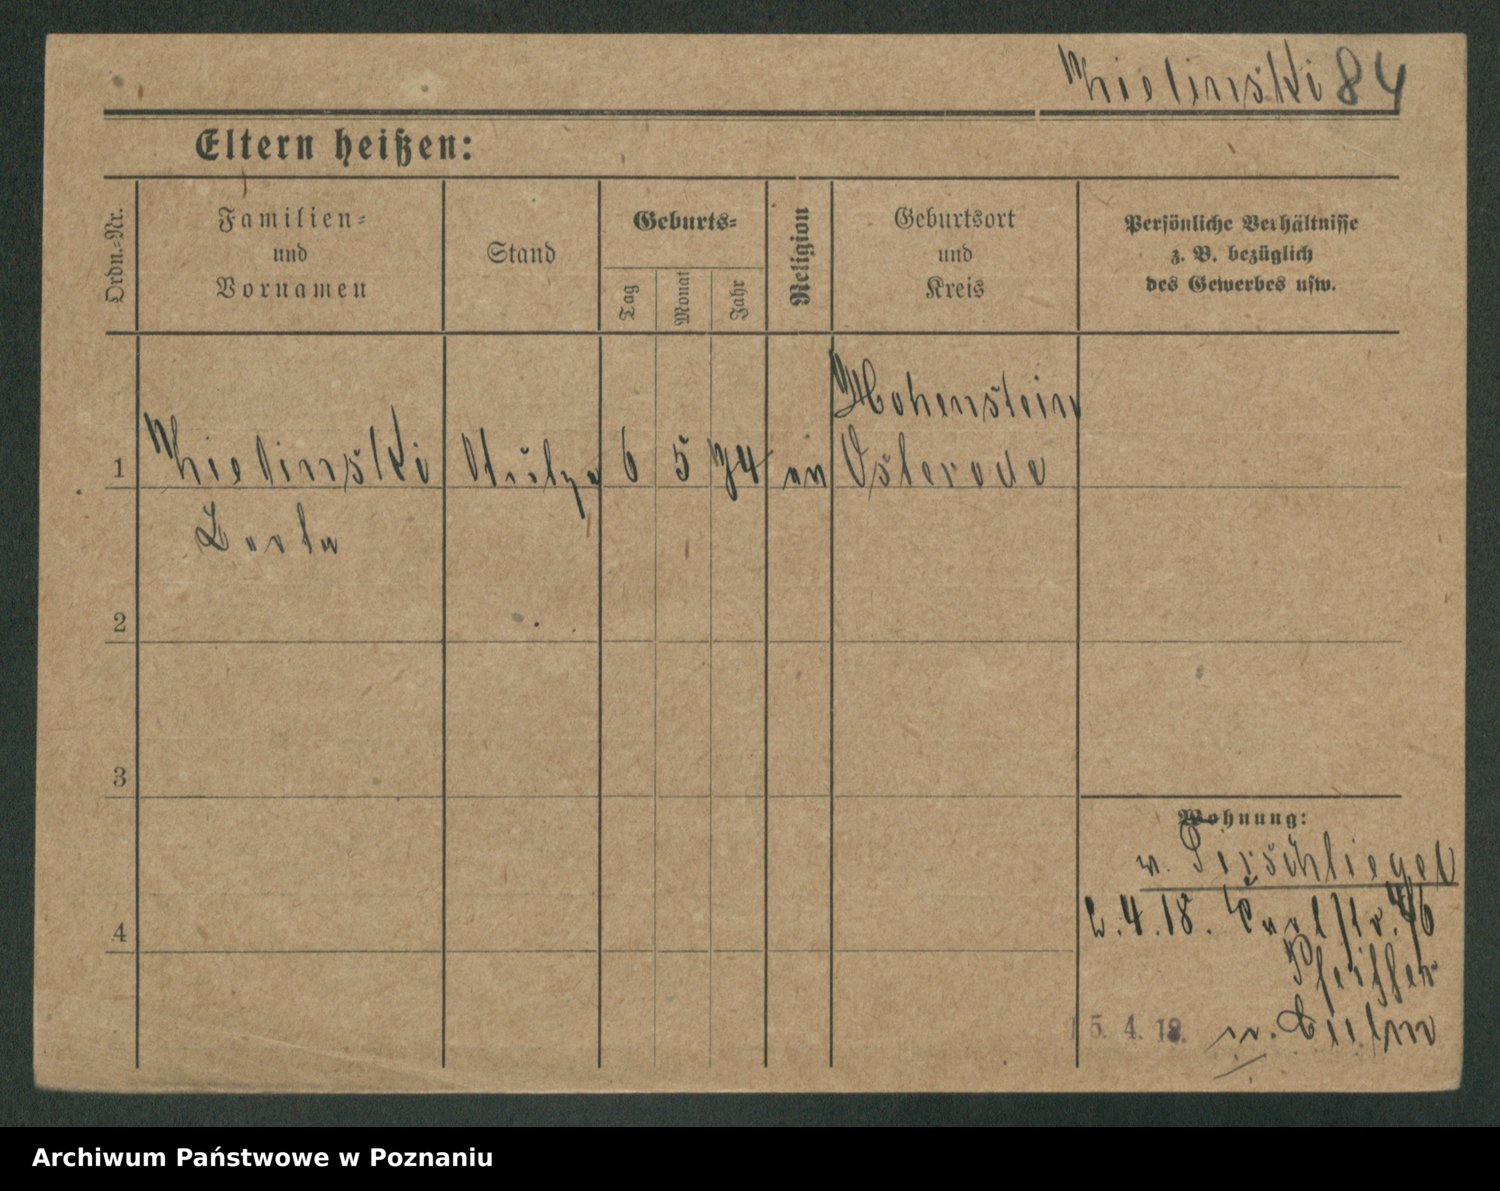 Zielinski 84
Eltern heißen:
Ordn.-Nr.
Familien-
und
Vornamen
Stand
Geburts-
Tag
Monat
Jahr
Religion
Geburtsort
und
Kreis
Persönliche Verhältnisse
z. B. bezüglich
des Gewerbes usw.
Hohenstein
1 Zielinski 6 5 74 Osterode
2
3
4
Wohnung:
2.4.18. Carlstr. 4/6
Pfeiffer
15. 4. 18. n. Culm
Archiwum Państwowe w Poznaniu